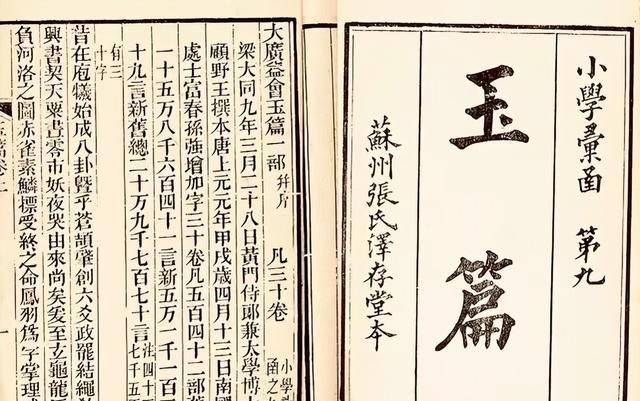 小學彙函 第九
玉篇
蘇州張氏澤存堂本
大廣益會玉篇一部 凡三十卷 小學
函之
梁大同九年三月二十八日黃門侍郎兼太學博
顧野王撰本唐上元元年甲戌歲四月十三日南國
處士富春孫強增加字三十卷凡五百四十二部舊
一十五萬八千六百四十一言新五萬一千一百
十九言新舊總二十萬九千七百七十言 注四十
七千五
有三
十字
昔在庖犧始成八卦暨乎蒼頡肇創六爻政罷結繩
興書契天粟晝零市妖夜哭由來尚矣爰至玄龜龍
負河洛之圖赤雀素鱗標受終之命鳳羽為字掌理